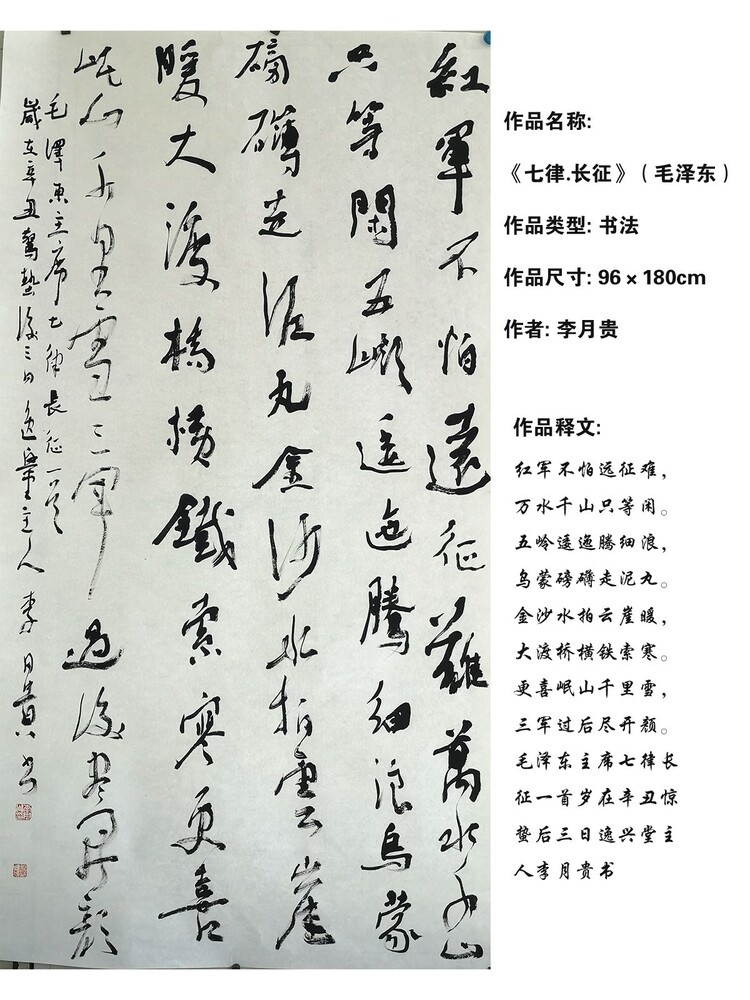 紅軍不怕遠征難萬水千山
只等閑五嶺逶迤騰細浪烏蒙
磅礴走泥丸金沙水拍雲崖
暖大渡橋橫鐵索寒更喜
岷山千里雪三軍過後盡開顏
毛澤東主席七律長征一首
歲在辛丑驚蟄後三日逸興堂主人李月貴书
作品名称:
《七律.长征》（毛泽东）
作品类型: 书法
作品尺寸: 96×180cm
作者: 李月贵
作品释文:
红军不怕远征难，
万水千山只等闲。
五岭逶迤腾细浪，
乌蒙磅礴走泥丸。
金沙水拍云崖暖，
大渡桥横铁索寒。
更喜岷山千里雪，
三军过后尽开颜。
毛泽东主席七律长
征一首岁在辛丑惊
蛰后三日逸兴堂主
人李月贵书